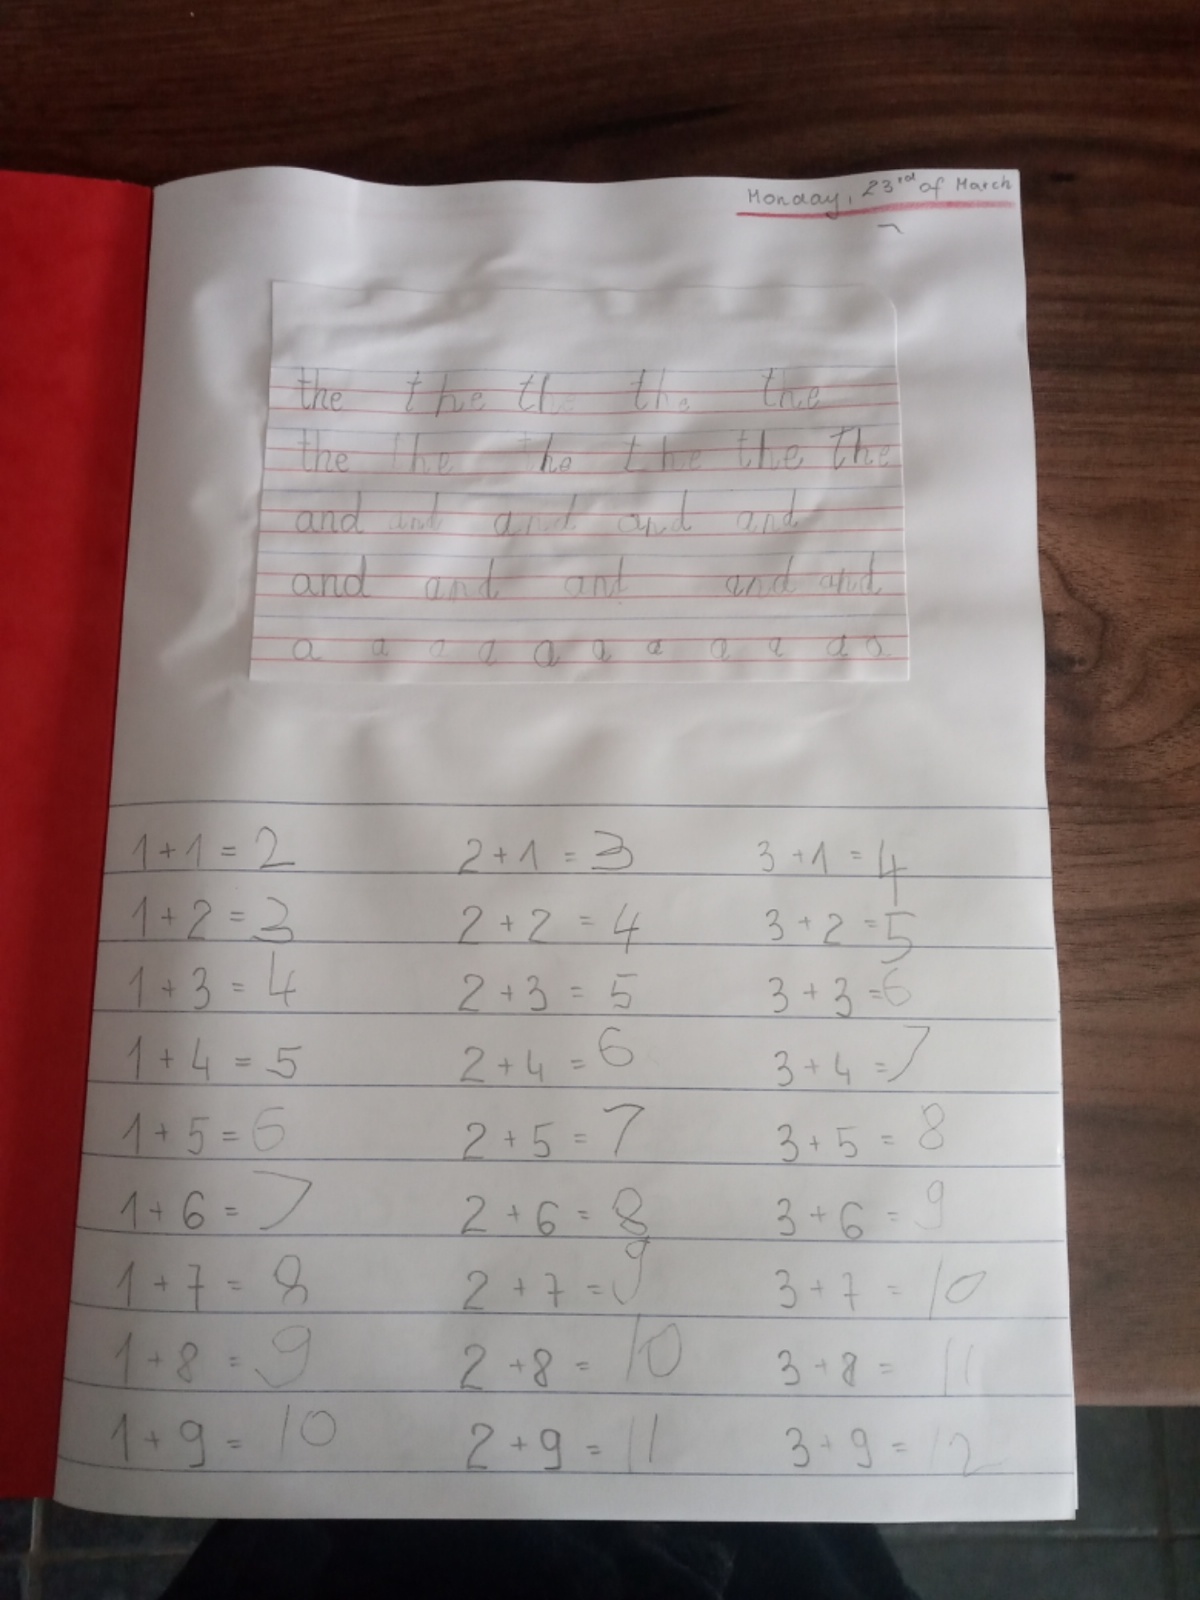 Monday, 23rd of March
the the the the the
the the the the the the
and and and and and
and and and and and
a a a a a a a a a a a
1+1=2 2+1=3 3+1=4
1+2=3 2+2=4 3+2=5
1+3=4 2+3=5 3+3=6
1+4=5 2+4=6 3+4=7
1+5=6 2+5=7 3+5=8
1+6=7 2+6=8 3+6=9
1+7=8 2+7=9 3+7=10
1+8=9 2+8=10 3+8=11
1+9=10 2+9=11 3+9=12